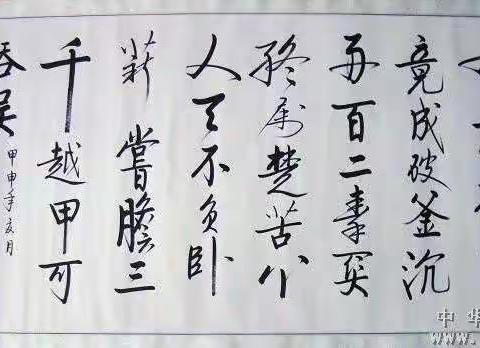 竟成破釜沉
舟百二秦关
终属楚苦心
人天不负卧
薪嘗膽三
千越甲可
吞吴
甲申年月
中华
www.